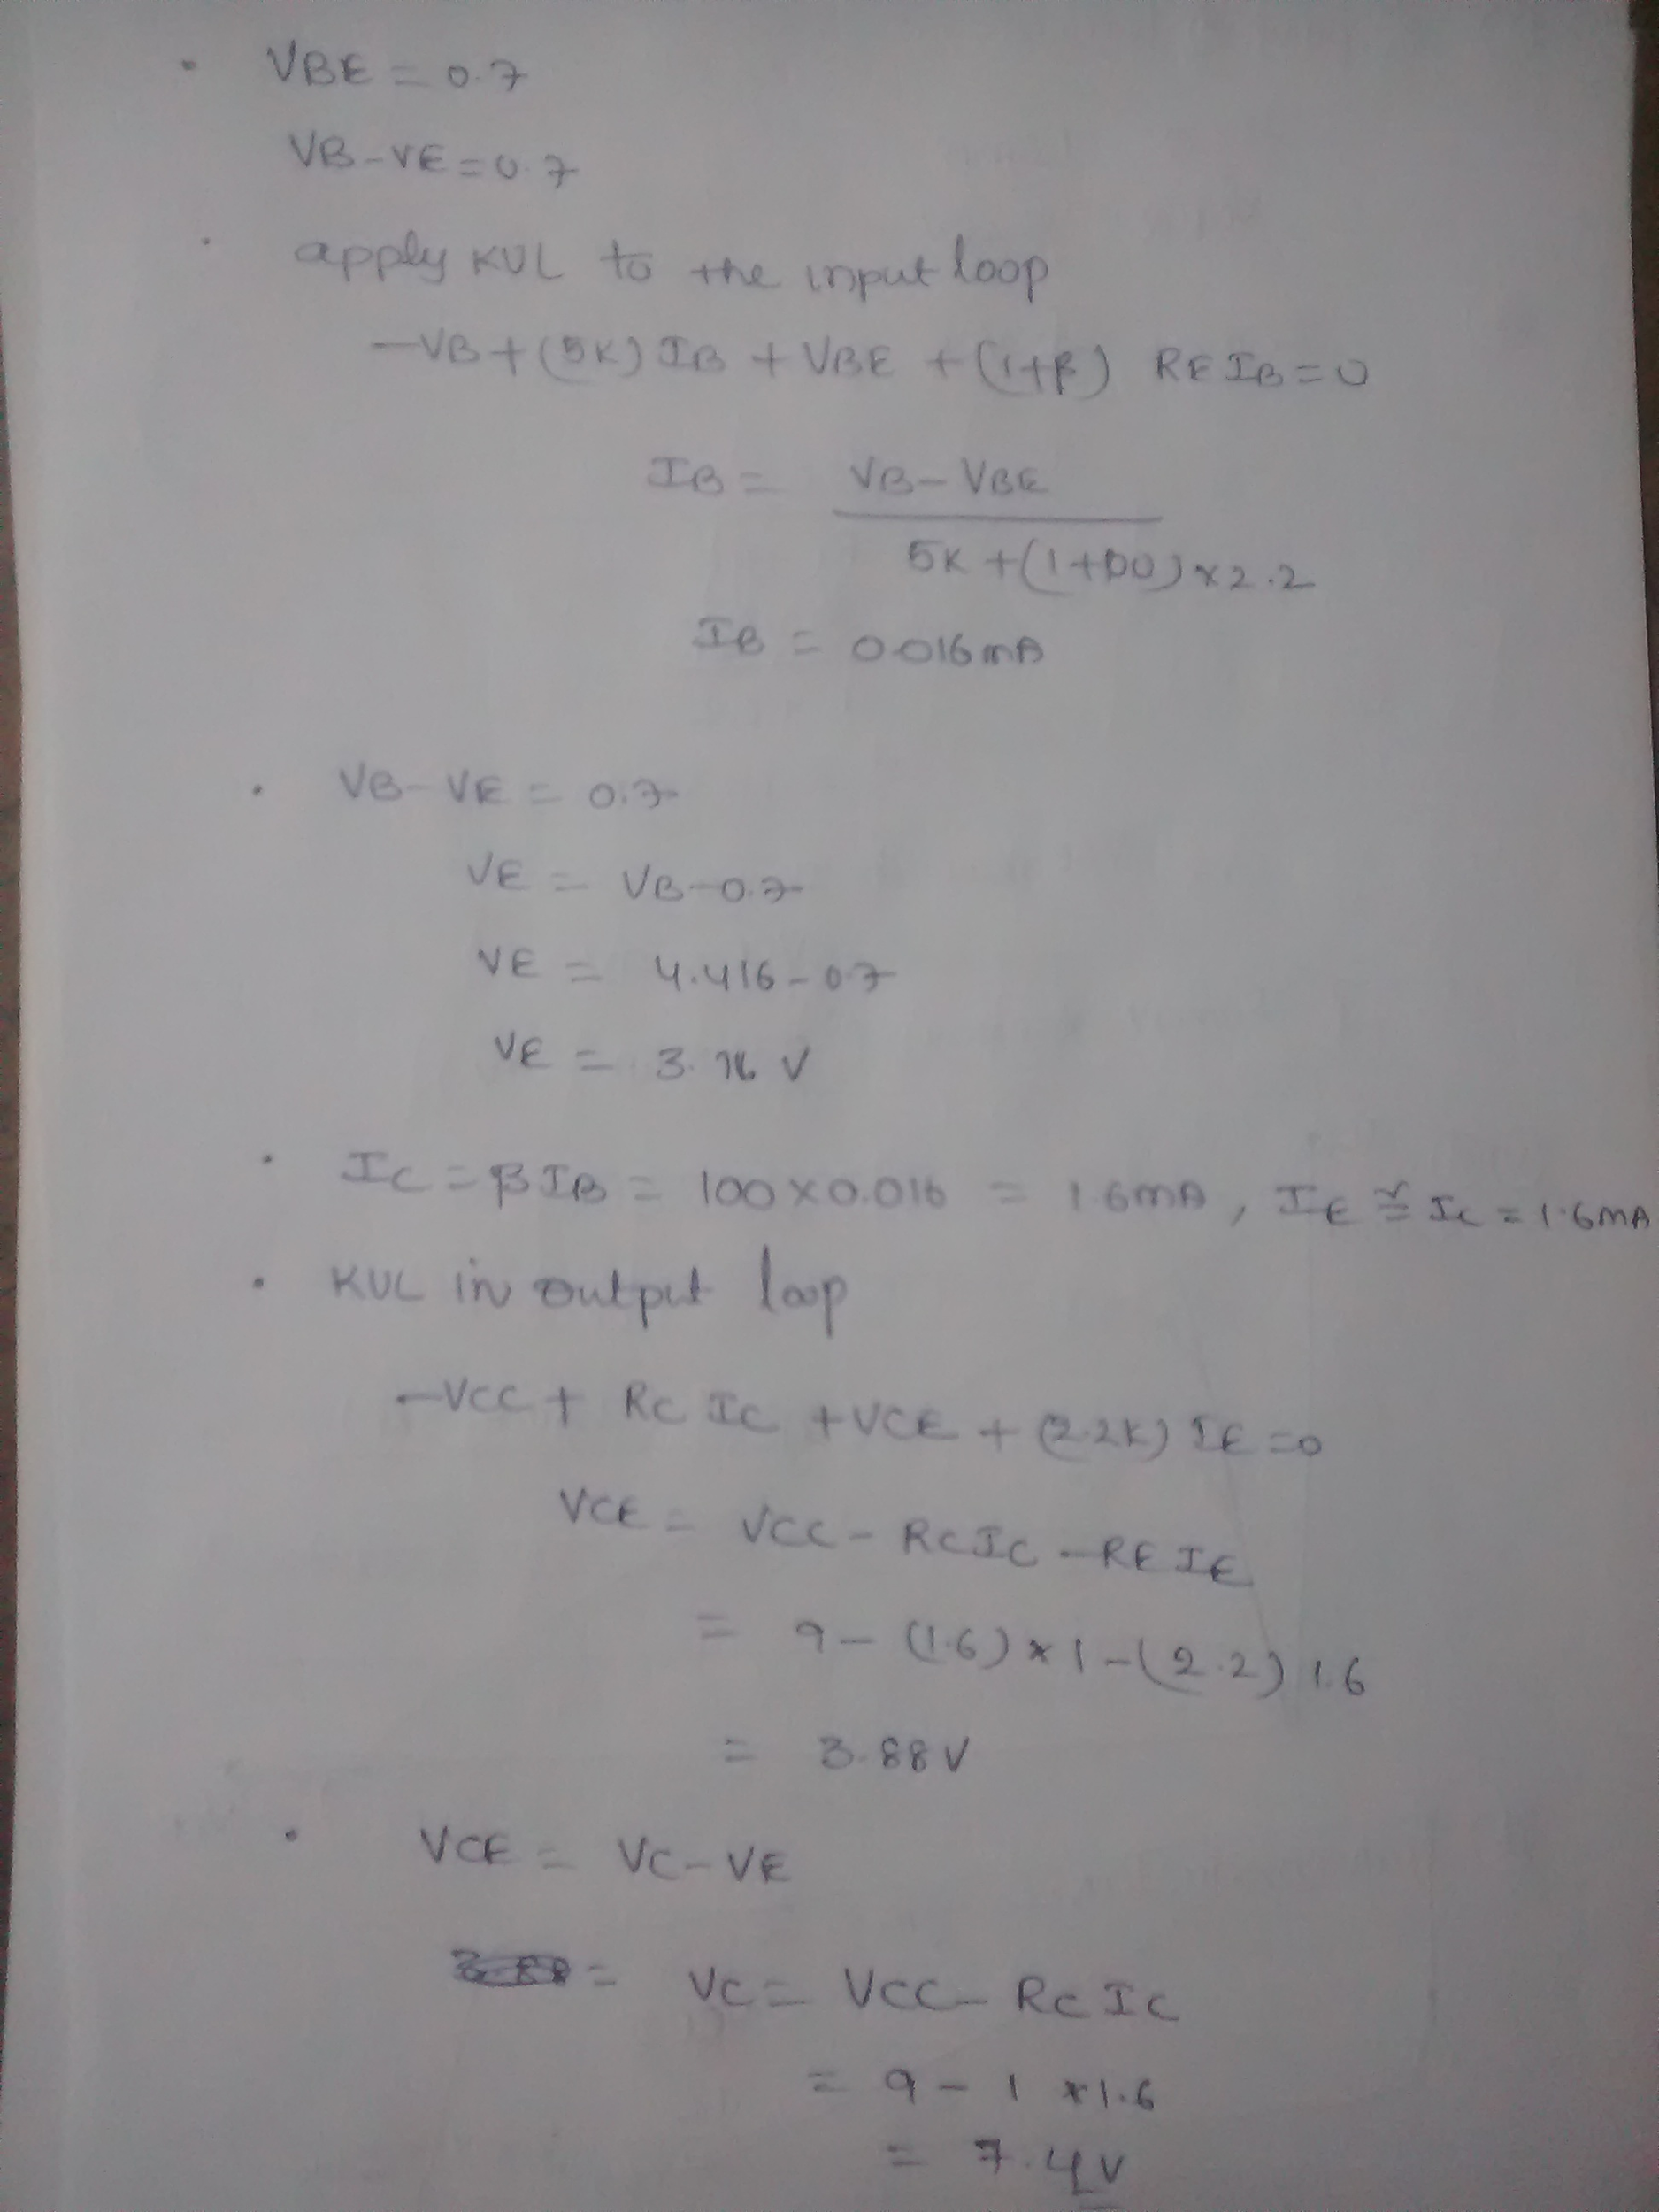 • VBE = 0.7
VB-VE = 0.7
• apply KVL to the input loop
-VB + (5K) IB + VBE + (1+β) RE IB = 0
IB = VB - VBE
5K + (1+100) × 2.2
IB = 0.016mA
• VB - VE = 0.7
VE = VB - 0.7
VE = 4.416 - 0.7
VE = 3.716 V
• IC = βIB = 100 × 0.016 = 1.6mA, IE ≅ IC = 1.6mA
• KVL in output loop
-VCC + RC IC + VCE + (2.2K) IE = 0
VCE = VCC - RC IC - RE IE
= 9 - (1.6) * 1 - (2.2) 1.6
= 3.88V
• VCE = VC - VE
= VC = VCC - RC IC
= 9 - 1 * 1.6
= 7.4V